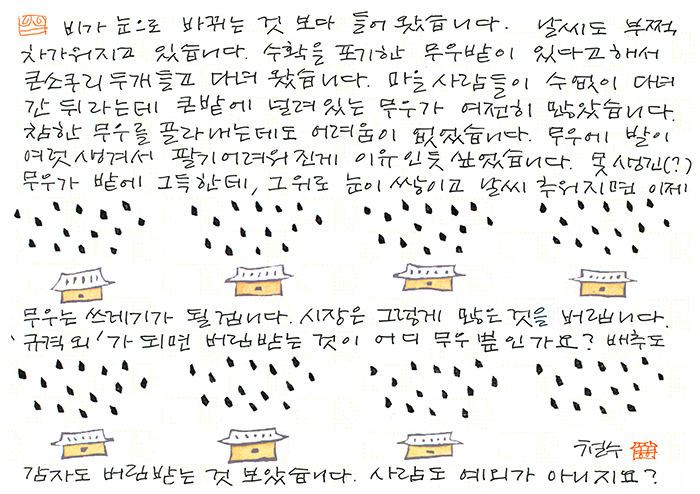 비가 눈으로 바뀌는 것 보다 들어 왔습니다. 날씨도 부쩍
차가워지고 있습니다. 수확을 포기한 무우밭이 있다고 해서
큰소쿠리 두개 들고 다녀 왔습니다. 마을 사람들이 수없이 다녀
간 뒤라는데 큰밭에 널려있는 무우가 여전히 많았습니다.
참한 무우를 골라내는데도 어려움이 없었습니다. 무우에 발이
여럿 생겨서 팔기어려워진게 이유인듯 싶었습니다. 못생긴(?)
무우가 밭에 그득한데, 그위로 눈이 쌓이고 날씨 추워지면 이제
무우는 쓰레기가 될겁니다. 시장은 그렇게 많은 것을 버립니다.
'규격 외'가 되면 버림받는 것이 어디 무우뿐인가요? 배추도
철수
감자도 버림받는 것 보았습니다. 사람도 예외가 아니지요?